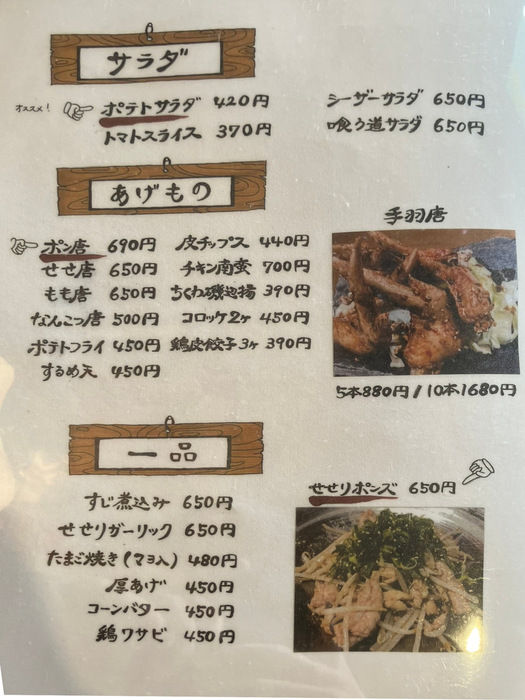 サラダ
オススメ!
ポテトサラダ 420円
シーザーサラダ 650円
トマトスライス 370円
喰う道サラダ 650円
あげもの
ポン唐 690円
皮チップス 440円
せせ唐 650円
チキン南蛮 700円
もも唐 650円
ちくわ磯辺揚 390円
なんこつ唐 500円
コロッケ2ヶ 450円
ポテトフライ 450円
鶏皮餃子3ヶ 390円
するめ天 450円
手羽唐
5本880円/10本1680円
一品
すじ煮込み 650円
せせりガーリック 650円
たまご焼き(マヨ入) 480円
厚あげ 450円
コーンバター 450円
鶏ワサビ 450円
せせりポンズ 650円